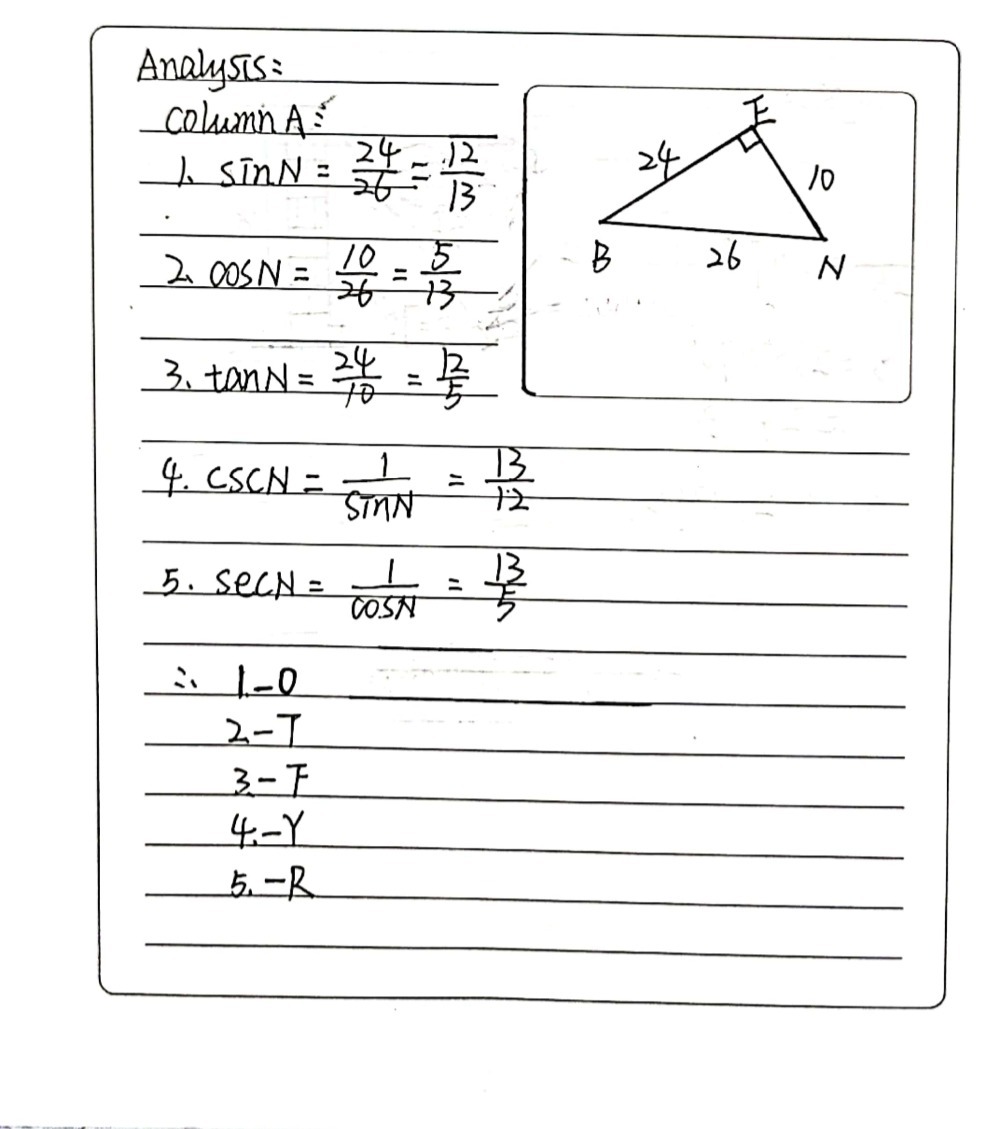 Analysis:
Column A:
1. sinN = 24/26 = 12/13
2. cosN = 10/26 = 5/13
3. tanN = 24/10 = 12/5
4. cscN = 1/sinN = 13/12
5. secN = 1/cosN = 13/5
∴ 1-O
2-T
3-F
4.-Y
5.-R
E
24
10
B
26
N